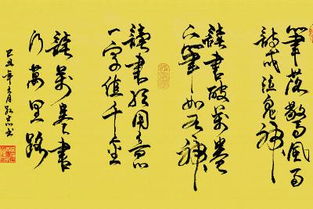 筆落驚風雨
詩成泣鬼神
讀書破萬卷
下筆如有神
讀書須用意
一字值千金
讀萬卷書
行萬里路
己丑年 月 書